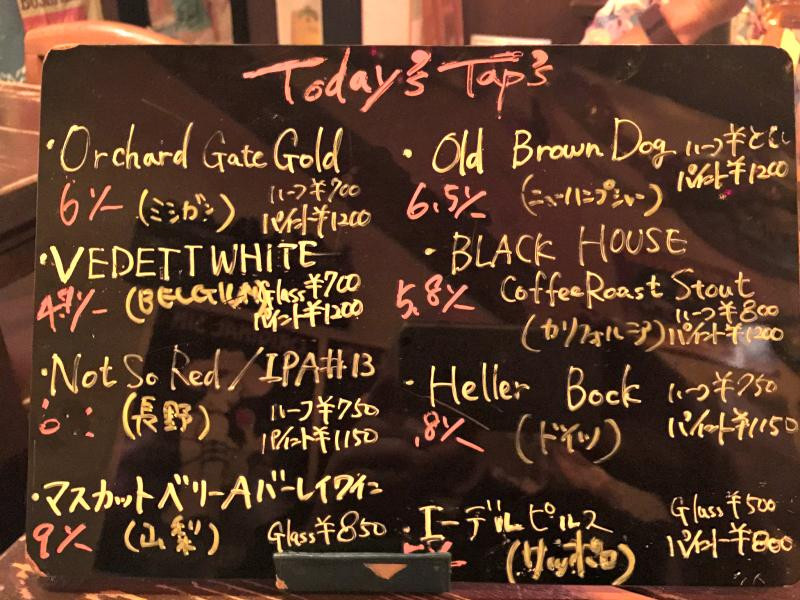 Today's Tap's
・Orchard Gate Gold
6% (ミシガン) ハーフ¥700
パイント¥1200
・VEDETT WHITE
4.7% (BELGIUM) Glass¥700
パイント¥1200
・Not So Red/IPA#13
6 (長野) ハーフ¥750
パイント¥1150
・マスカットベリーAバーレイワイン
9% (山梨) Glass¥850
・Old Brown Dog ハーフ¥
パイント¥1200
6.5% (ニューハンプシャー)
・BLACK HOUSE
Coffee Roast Stout
5.8% ハーフ¥800
(カリフォルニア) パイント¥1200
・Heller Bock ハーフ¥750
.8% (ドイツ) パイント¥1150
・エーデルピルス Glass¥500
(サッポロ) パイント¥800